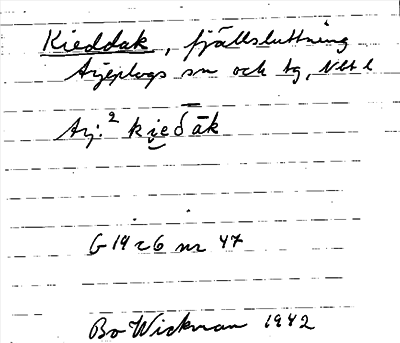 Kieddak, fjällsluttning
Arjeplogs sn och tg, Nbt l
Arj: ² ki̯eδ̄āk
G 19 c 6 nr 47
Bo Wickman 1942